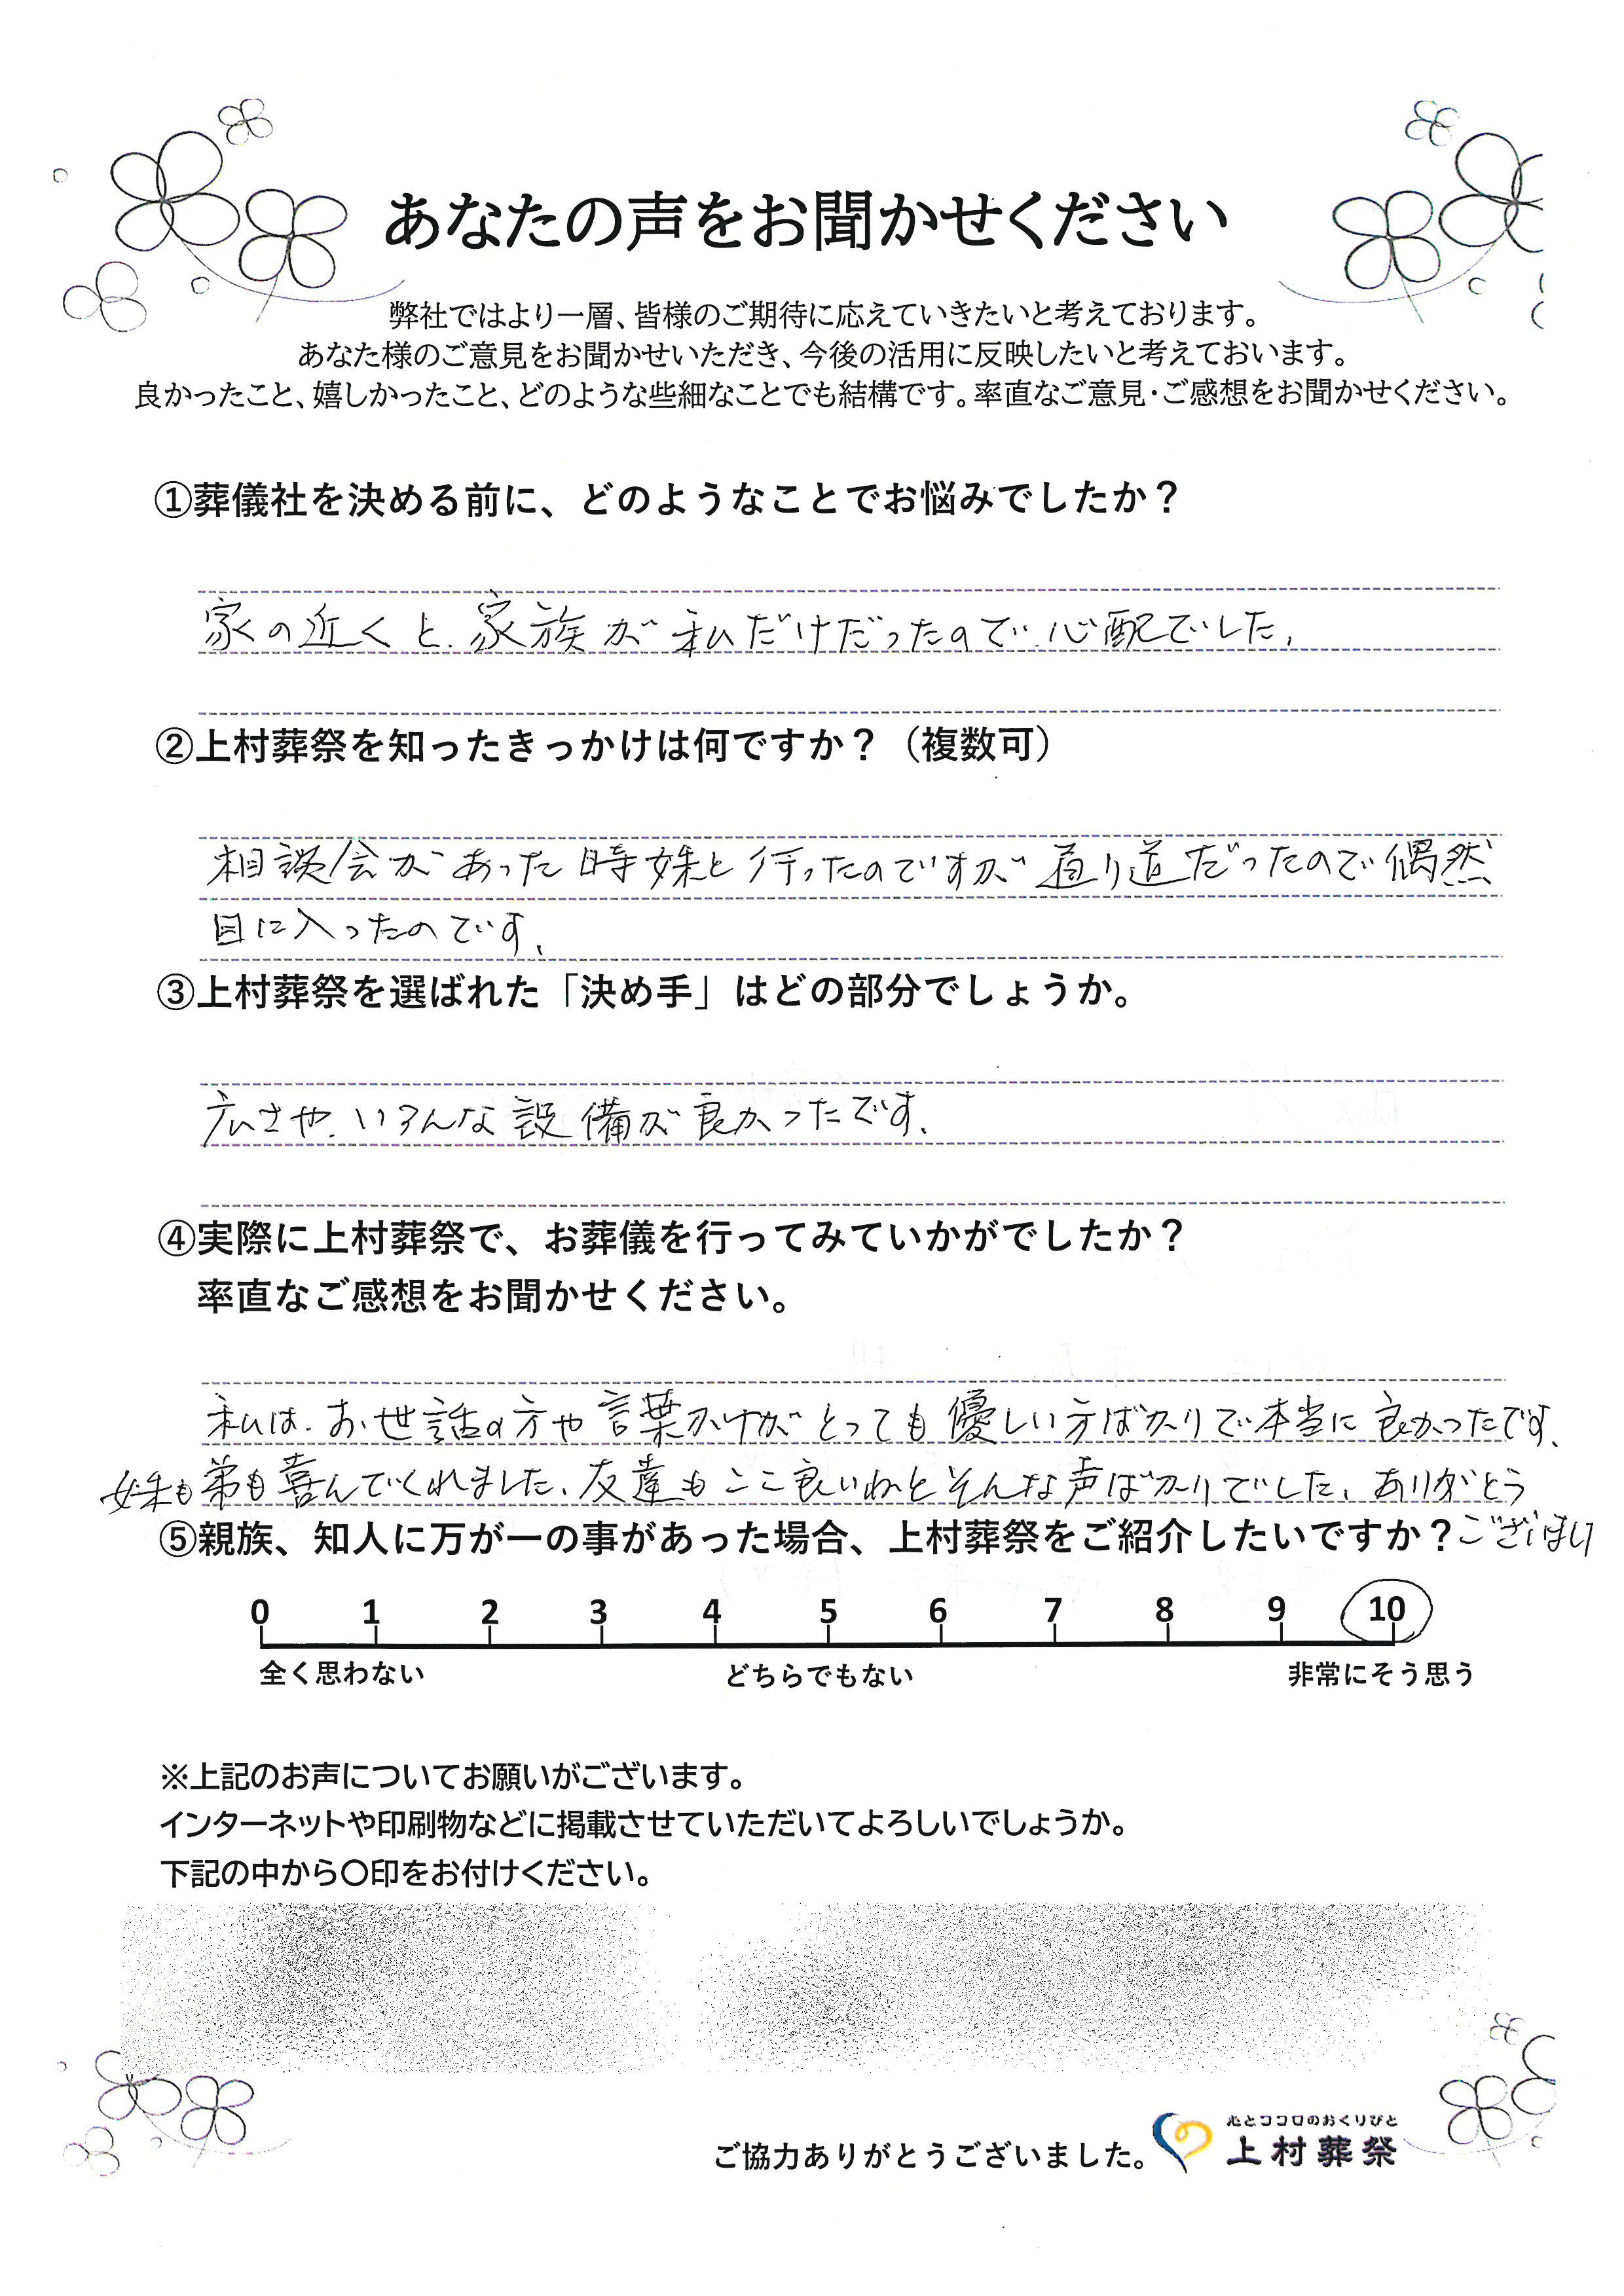 あなたの声をお聞かせください
弊社ではより一層、皆様のご期待に応えていきたいと考えております。
あなた様のご意見をお聞かせいただき、今後の活用に反映したいと考えておいます。
良かったこと、嬉しかったこと、どのような些細なことでも結構です。率直なご意見・ご感想をお聞かせください。
①葬儀社を決める前に、どのようなことでお悩みでしたか？
家の近くと、家族が私だけだったので、心配でした、
②上村葬祭を知ったきっかけは何ですか？（複数可）
相談会があった時妹と行ったのですが通り道だったので偶然
目に入ったのです、
③上村葬祭を選ばれた「決め手」はどの部分でしょうか。
広さや、いろんな設備が良かったです、
④実際に上村葬祭で、お葬儀を行ってみていかがでしたか？
率直なご感想をお聞かせください。
私は、お世話の方や言葉かけがとっても優しい方ばかりで本当に良かったです、
妹も弟も喜んでくれました、友達もここ良いねとそんな声ばかりでした、ありがとう
ございました
⑤親族、知人に万が一の事があった場合、上村葬祭をご紹介したいですか？
0 1 2 3 4 5 6 7 8 9 10
全く思わない どちらでもない 非常にそう思う
※上記のお声についてお願いがございます。
インターネットや印刷物などに掲載させていただいてよろしいでしょうか。
下記の中から〇印をお付けください。
ご協力ありがとうございました。
心とココロのおくりびと
上村葬祭